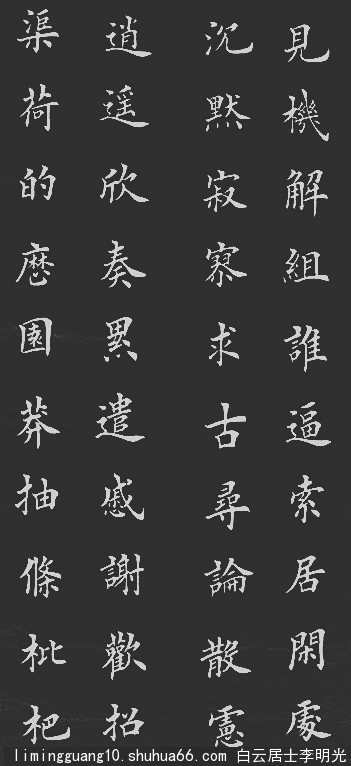 見機解組誰逼索居閑處
沉默寂寥求古尋論散慮
逍遥欣奏累遣慼謝歡招
渠荷的歷園莽抽條枇杷
limingguang10.shuhua66.com 白云居士李明光